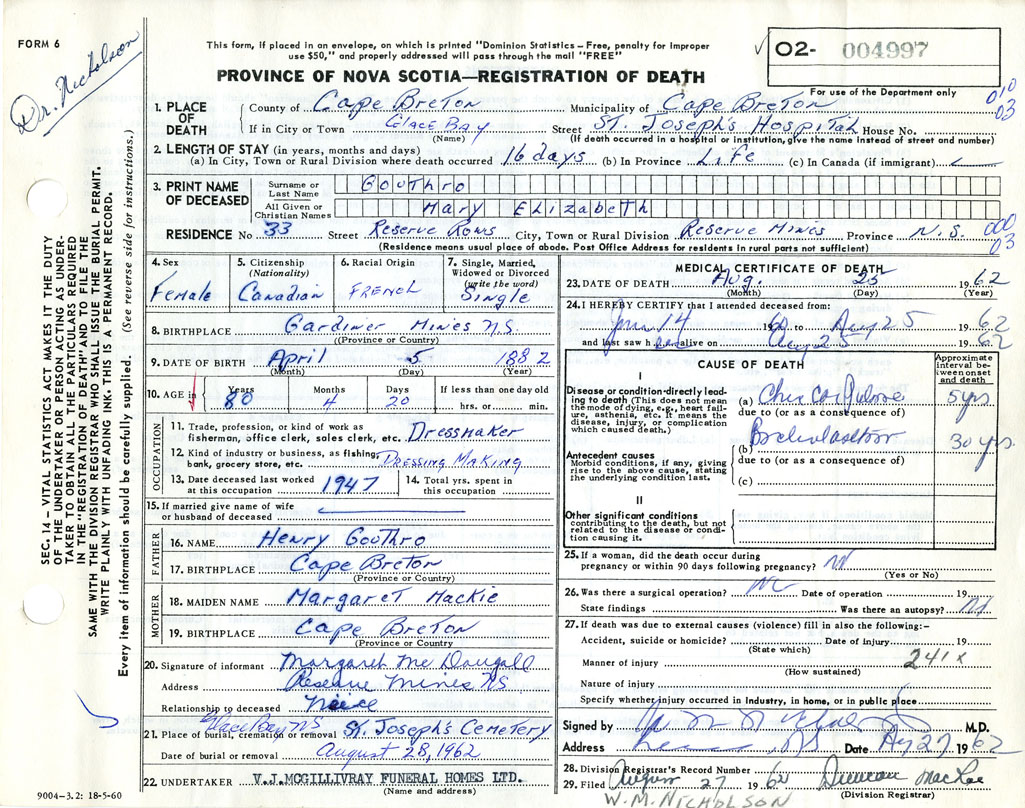 FORM 6
Dr. Nicholson
This form, if placed in an envelope, on which is printed "Dominion Statistics – Free, penalty for improper
use $50," and properly addressed will pass through the mail "FREE"
PROVINCE OF NOVA SCOTIA—REGISTRATION OF DEATH
✓ 02- 004997
For use of the Department only
010
03
1. PLACE OF DEATH
County of Cape Breton Municipality of Cape Breton
If in City or Town Glace Bay Street St. Joseph's Hospital House No.
(Name) (If death occurred in a hospital or institution, give the name instead of street and number)
2. LENGTH OF STAY (in years, months and days)
(a) In City, Town or Rural Division where death occurred 16 days (b) In Province Life (c) In Canada (if immigrant)
3. PRINT NAME OF DECEASED
Surname or Last Name Gouthro
All Given or Christian Names Mary Elizabeth
RESIDENCE No 33 Street Reserve Rows City, Town or Rural Division Reserve Mines Province N.S.
000
03
(Residence means usual place of abode. Post Office Address for residents in rural parts not sufficient)
4. Sex Female
5. Citizenship (Nationality) Canadian
6. Racial Origin French
7. Single, Married, Widowed or Divorced (write the word) Single
8. BIRTHPLACE Gardiner Mines N.S.
(Province or Country)
9. DATE OF BIRTH April 5 1882
(Month) (Day) (Year)
10. AGE in Years 80 Months 4 Days 20 If less than one day old hrs. or min.
OCCUPATION
11. Trade, profession, or kind of work as fisherman, office clerk, sales clerk, etc. Dressmaker
12. Kind of industry or business, as fishing, bank, grocery store, etc. Dressing Making
13. Date deceased last worked at this occupation 1947
14. Total yrs. spent in this occupation
15. If married give name of wife or husband of deceased
FATHER
16. NAME Henry Gouthro
17. BIRTHPLACE Cape Breton
(Province or Country)
MOTHER
18. MAIDEN NAME Margaret Mackie
19. BIRTHPLACE Cape Breton
(Province or Country)
20. Signature of informant Margaret McDougall
Address Reserve Mines NS
Relationship to deceased Niece
Glace Bay NS
21. Place of burial, cremation or removal St. Joseph's Cemetery
Date of burial or removal August 28, 1962
22. UNDERTAKER V.J. MCGILLIVRAY FUNERAL HOMES LTD.
(Name and address)
9004-3.2: 18-5-60
MEDICAL CERTIFICATE OF DEATH
23. DATE OF DEATH Aug. 25 1962
(Month) (Day) (Year)
24. I HEREBY CERTIFY that I attended deceased from:
14 to Aug 25 1962
and last saw h alive on Aug 25 1962
CAUSE OF DEATH
Approximate interval between onset and death
I
Disease or condition-directly leading to death (This does not mean the mode of dying, e.g., heart failure, asthenia, etc. It means the disease, injury, or complication which caused death.)
(a) 5 yrs
due to (or as a consequence of)
Antecedent causes
Morbid conditions, if any, giving rise to the above cause, stating the underlying condition last.
(b) 30 yrs.
due to (or as a consequence of)
(c)
II
Other significant conditions contributing to the death, but not related to the disease or condition causing it.
25. If a woman, did the death occur during pregnancy or within 90 days following pregnancy?
(Yes or No)
26. Was there a surgical operation? Date of operation 19
State findings Was there an autopsy?
27. If death was due to external causes (violence) fill in also the following:–
Accident, suicide or homicide? Date of injury 19
(State which)
Manner of injury 241x
(How sustained)
Nature of injury
Specify whether injury occurred in Industry, in home, or in public place
Signed by M.D.
Address Date Aug 27 1962
28. Division Registrar's Record Number
29. Filed August 27 1962 Duncan MacRae
(Division Registrar)
W.M. NICHOLSON
SEC. 14 – VITAL STATISTICS ACT MAKES IT THE DUTY
OF THE UNDERTAKER OR PERSON ACTING AS UNDER-
TAKER TO OBTAIN ALL THE PARTICULARS REQUIRED
IN THE "REGISTRATION OF DEATH" AND TO FILE THE
SAME WITH THE DIVISION REGISTRAR WHO SHALL ISSUE THE BURIAL PERMIT.
WRITE PLAINLY WITH UNFADING INK. THIS IS A PERMANENT RECORD.
Every item of information should be carefully supplied. (See reverse side for instructions.)